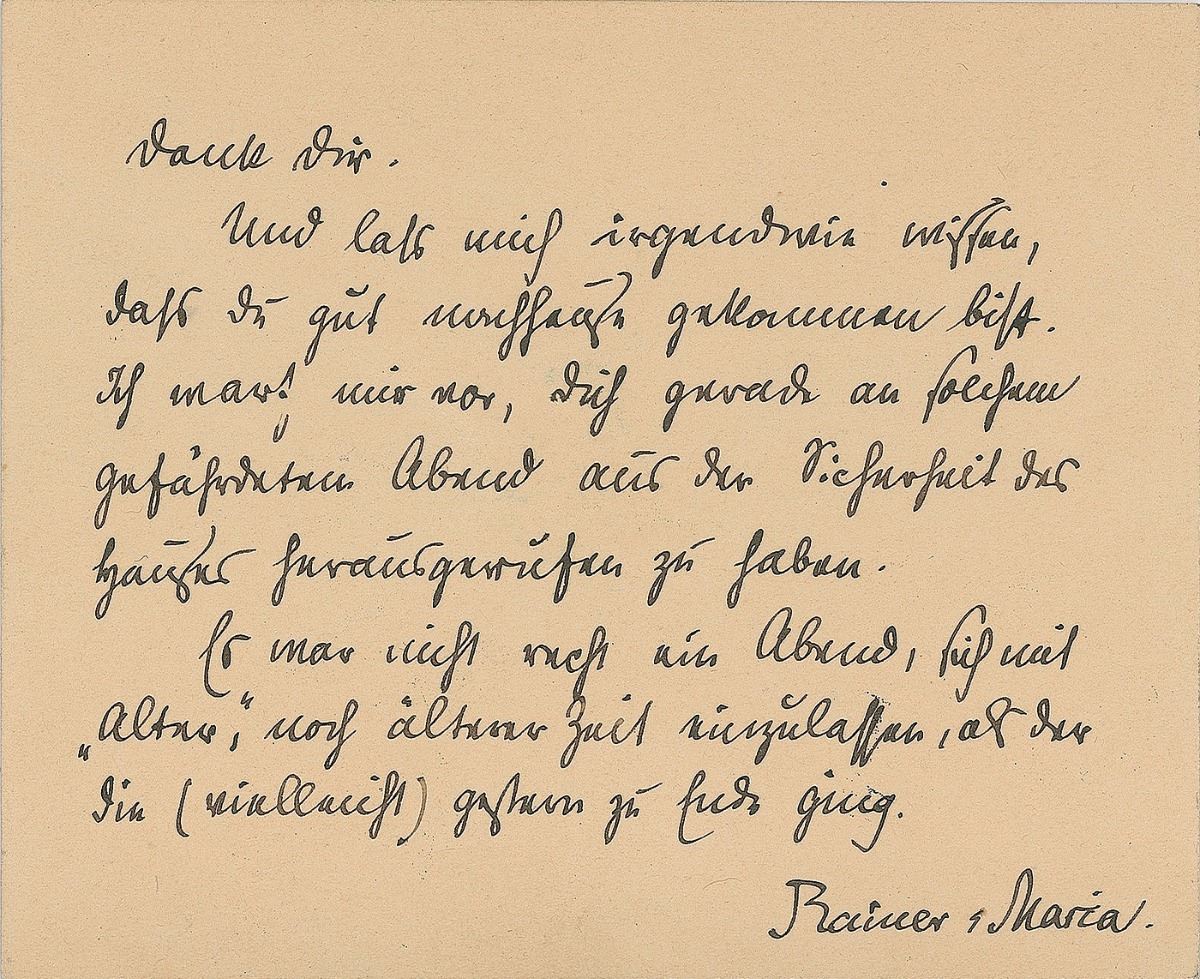 Dank Dir.
Und lass mich irgendwie wissen,
dass du gut nachhause gekommen bist.
Ich warf mir vor, Dich gerade an solchem
gefährdeten Abend aus der Sicherheit des
Hauses herausgerufen zu haben.
Es war nicht recht ein Abend, sich mit
„Alter“, noch älterer Zeit einzulassen, als der
die (vielleicht) gestern zu Ende ging.
Rainer Maria.